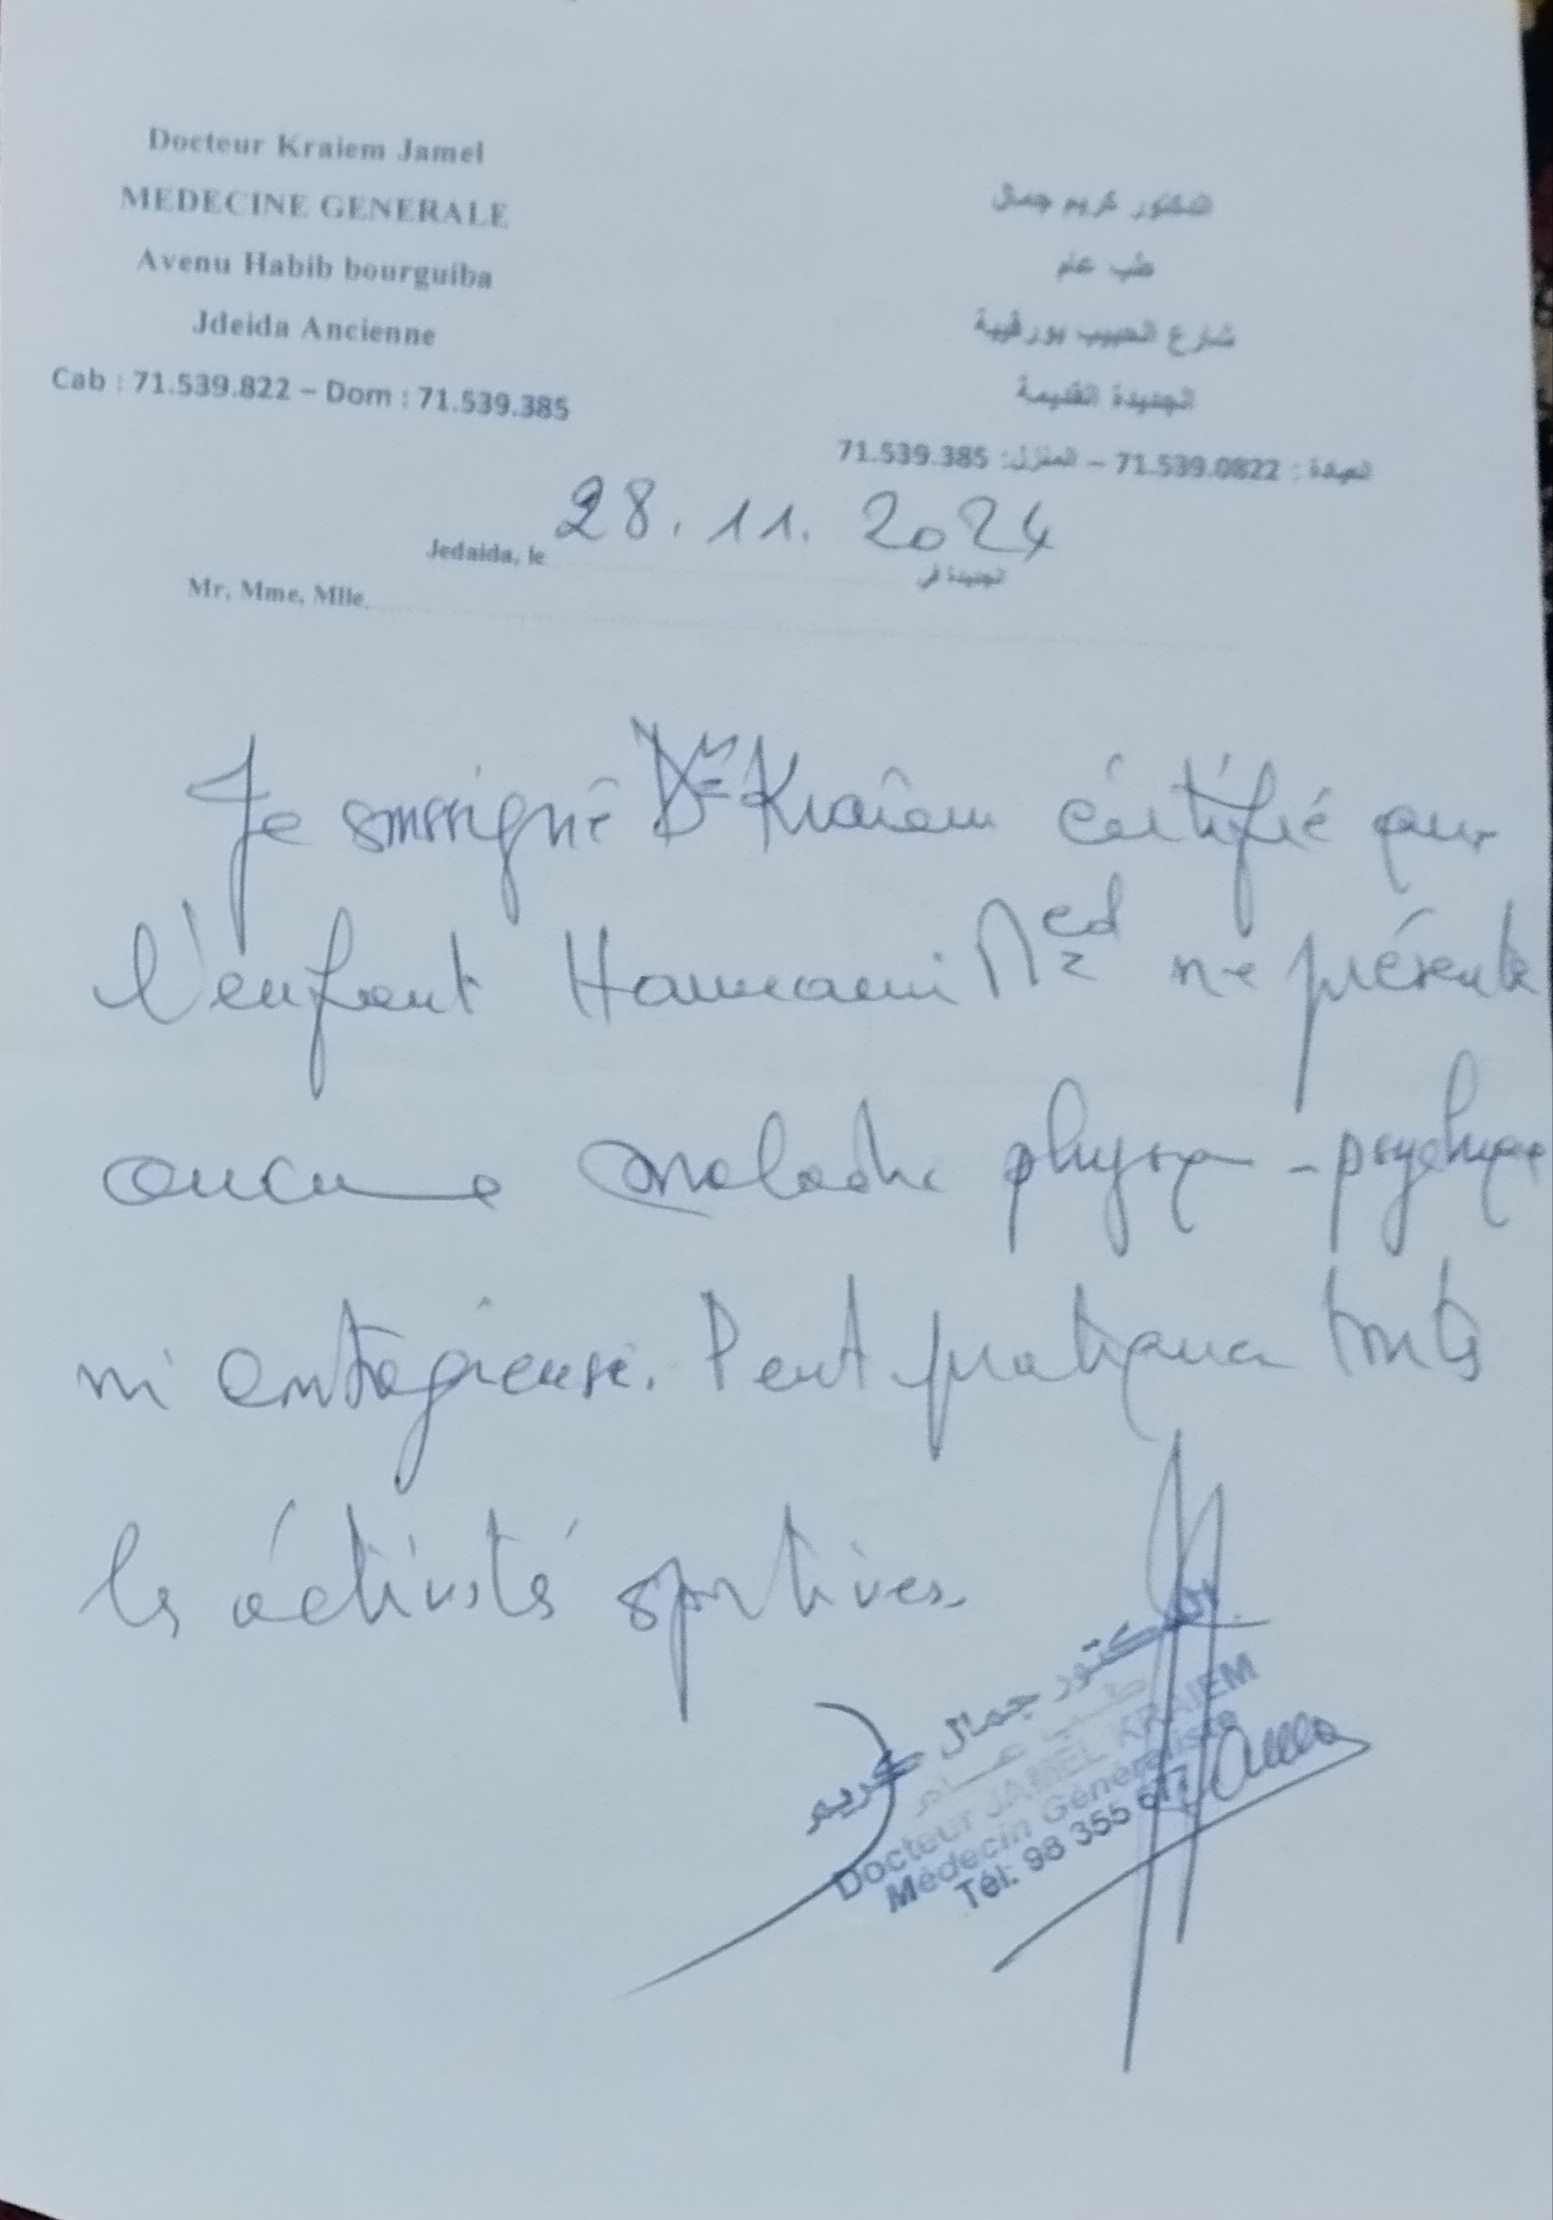 Docteur Kraiem Jamel
MEDECINE GENERALE
Avenu Habib bourguiba
Jdeida Ancienne
Cab : 71.539.822 – Dom : 71.539.385
الدكتور كريم جمال
طب عام
شارع الحبيب بورقيبة
الجديدة القديمة
العيادة : 71.539.0822 – المنزل: 71.539.385
Jedaida, le 28.11.2024 الجديدة في
Mr, Mme, Mlle
Je soussigné Dr Kraiem certifié que
l'enfant Hammami Med ne présente
aucune maladie physique - psychique
ni contagieuse. Peut pratiquer touts
les activités sportives.
الدكتور جمال كريم
طب عام
Docteur JAMEL KRAIEM
Médecin Généraliste
Tél: 98 355 677